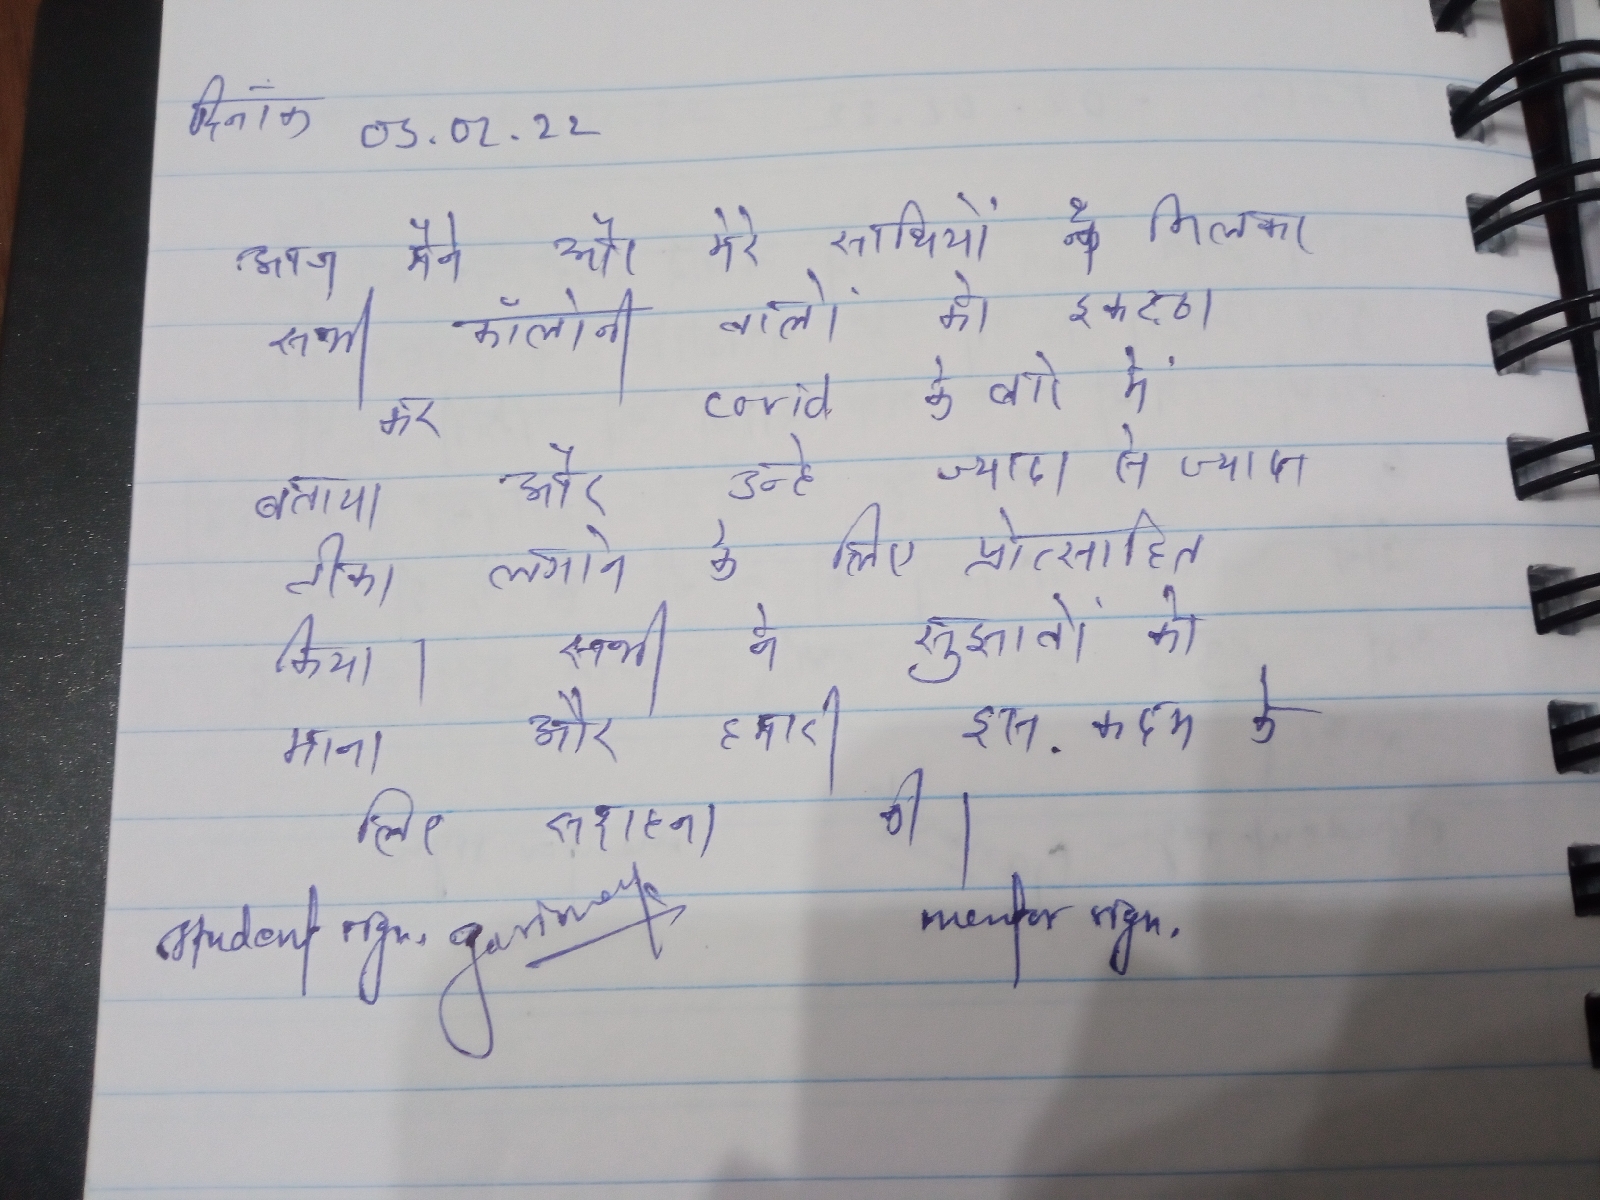 दिनांक 03.02.22
आज मैंने और मेरे साथियों ने मिलकर
सभी कॉलोनी वालों को इकट्ठा
कर covid के बारे में
बताया और उन्हे ज्यादा से ज्यादा
टीका लगाने के लिए प्रोत्साहित
किया। सभी ने सुझावों को
माना और हमारी इस. कदम के
लिए सराहना की।
student sign. garima mentor sign.